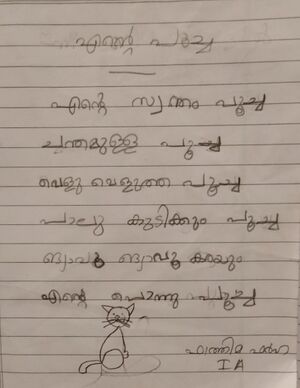 എന്റെ പൂച്ച
എന്റെ സ്വന്തം പൂച്ച
ചന്തമുള്ള പൂച്ച
വെളു വെളുത്ത പൂച്ച
പാലു കുടിക്കും പൂച്ച
ങ്യാവൂ ങ്യാവൂ കരയും
എന്റെ പൊന്നു പൂച്ച
ഫാത്തിമ
I A